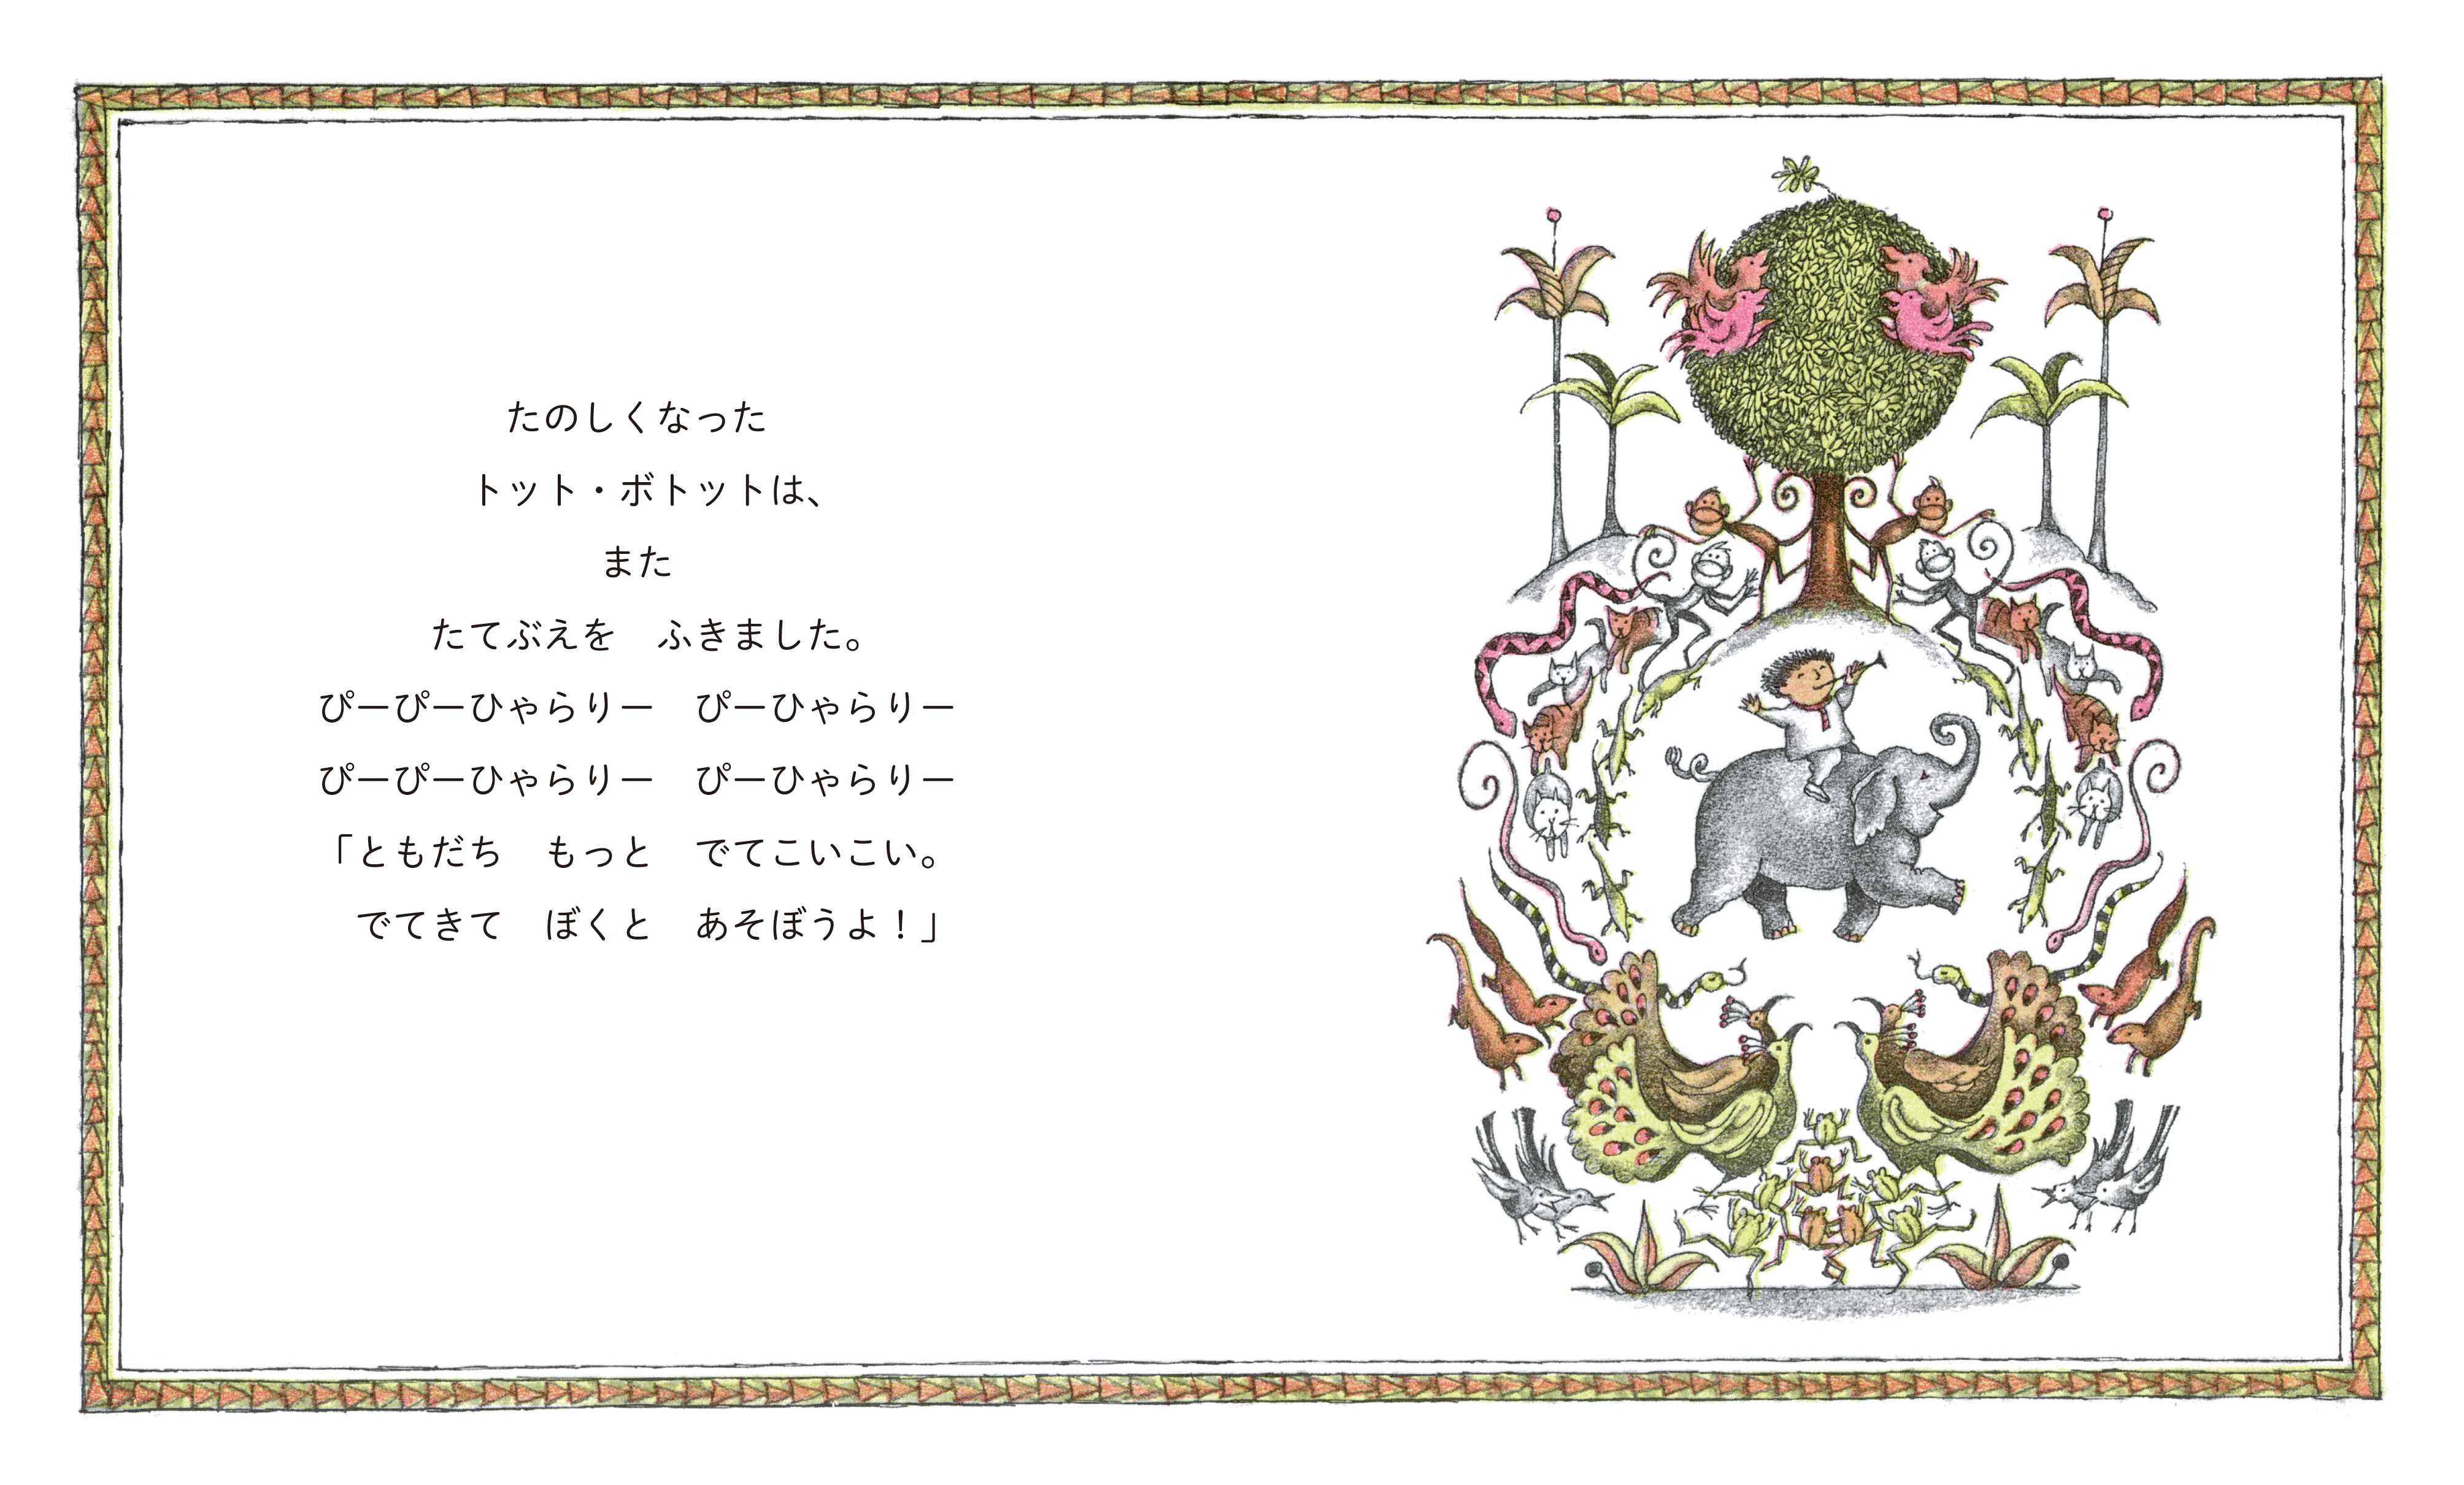 たのしくなった
トット・ボトットは、
また
たてぶえを　ふきました。
ぴーぴーひゃらりー　ぴーひゃらりー
ぴーぴーひゃらりー　ぴーひゃらりー
「ともだち　もっと　でてこいこい。
でてきて　ぼくと　あそぼうよ！」